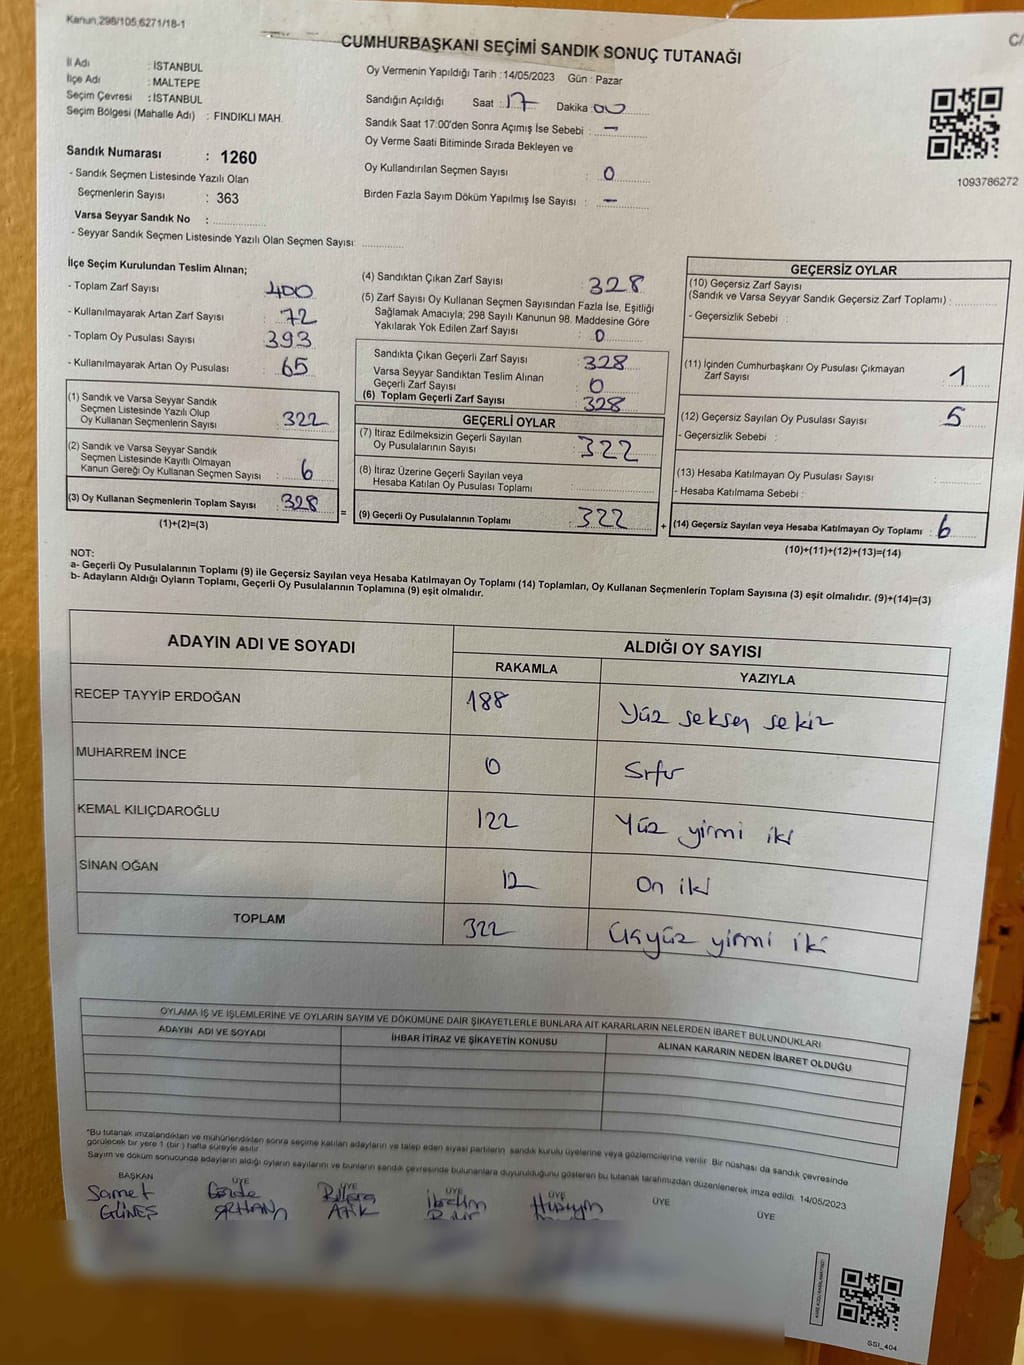 Kanun,298/105,6271/18-1
C/
CUMHURBAŞKANI SEÇİMİ SANDIK SONUÇ TUTANAĞI
İl Adı : İSTANBUL
İlçe Adı : MALTEPE
Seçim Çevresi : İSTANBUL
Seçim Bölgesi (Mahalle Adı) : FINDIKLI MAH.
Sandık Numarası : 1260
- Sandık Seçmen Listesinde Yazılı Olan
Seçmenlerin Sayısı : 363
Varsa Seyyar Sandık No :
- Seyyar Sandık Seçmen Listesinde Yazılı Olan Seçmen Sayısı:
Oy Vermenin Yapıldığı Tarih : 14/05/2023 Gün : Pazar
Sandığın Açıldığı Saat : 17 Dakika : 00
Sandık Saat 17:00'den Sonra Açımış İse Sebebi : –
Oy Verme Saati Bitiminde Sırada Bekleyen ve
Oy Kullandırılan Seçmen Sayısı : 0
Birden Fazla Sayım Döküm Yapılmış İse Sayısı : –
1093786272
İlçe Seçim Kurulundan Teslim Alınan;
- Toplam Zarf Sayısı 400
- Kullanılmayarak Artan Zarf Sayısı : 72
- Toplam Oy Pusulası Sayısı 393
- Kullanılmayarak Artan Oy Pusulası : 65
(1) Sandık ve Varsa Seyyar Sandık
Seçmen Listesinde Yazılı Olup
Oy Kullanan Seçmenlerin Sayısı : 322
(2) Sandık ve Varsa Seyyar Sandık
Seçmen Listesinde Kayıtlı Olmayan
Kanun Gereği Oy Kullanan Seçmen Sayısı : 6
(3) Oy Kullanan Seçmenlerin Toplam Sayısı : 328
(1)+(2)=(3)
=
(4) Sandıktan Çıkan Zarf Sayısı : 328
(5) Zarf Sayısı Oy Kullanan Seçmen Sayısından Fazla İse, Eşitliği
Sağlamak Amacıyla; 298 Sayılı Kanunun 98. Maddesine Göre
Yakılarak Yok Edilen Zarf Sayısı : 0
Sandıkta Çıkan Geçerli Zarf Sayısı : 328
Varsa Seyyar Sandıktan Teslim Alınan
Geçerli Zarf Sayısı : 0
(6) Toplam Geçerli Zarf Sayısı : 328
GEÇERLİ OYLAR
(7) İtiraz Edilmeksizin Geçerli Sayılan
Oy Pusulalarının Sayısı : 322
(8) İtiraz Üzerine Geçerli Sayılan veya
Hesaba Katılan Oy Pusulası Toplamı :
(9) Geçerli Oy Pusulalarının Toplamı : 322
+
GEÇERSİZ OYLAR
(10) Geçersiz Zarf Sayısı
(Sandık ve Varsa Seyyar Sandık Geçersiz Zarf Toplamı) :
- Geçersizlik Sebebi :
(11) İçinden Cumhurbaşkanı Oy Pusulası Çıkmayan
Zarf Sayısı : 1
(12) Geçersiz Sayılan Oy Pusulası Sayısı : 5
- Geçersizlik Sebebi :
(13) Hesaba Katılmayan Oy Pusulası Sayısı :
- Hesaba Katılmama Sebebi :
(14) Geçersiz Sayılan veya Hesaba Katılmayan Oy Toplamı : 6
(10)+(11)+(12)+(13)=(14)
NOT:
a- Geçerli Oy Pusulalarının Toplamı (9) ile Geçersiz Sayılan veya Hesaba Katılmayan Oy Toplamı (14) Toplamları, Oy Kullanan Seçmenlerin Toplam Sayısına (3) eşit olmalıdır. (9)+(14)=(3)
b- Adayların Aldığı Oyların Toplamı, Geçerli Oy Pusulalarının Toplamına (9) eşit olmalıdır.
ADAYIN ADI VE SOYADI
ALDIĞI OY SAYISI
RAKAMLA YAZIYLA
RECEP TAYYİP ERDOĞAN 188 Yüz seksen sekiz
MUHARREM İNCE 0 Sıfır
KEMAL KILIÇDAROĞLU 122 Yüz yirmi iki
SİNAN OĞAN 12 On iki
TOPLAM 322 Üçyüz yirmi iki
OYLAMA İŞ VE İŞLEMLERİNE VE OYLARIN SAYIM VE DÖKÜMÜNE DAİR ŞİKAYETLERLE BUNLARA AİT KARARLARIN NELERDEN İBARET BULUNDUKLARI
ADAYIN ADI VE SOYADI
İHBAR İTİRAZ VE ŞİKAYETİN KONUSU
ALINAN KARARIN NEDEN İBARET OLDUĞU
*Bu tutanak imzalandıktan ve mühürlendikten sonra seçime katılan adayların ve talep eden siyasi partilerin sandık kurulu üyelerine veya gözlemcilerine verilir. Bir nüshası da sandık çevresinde
görülecek bir yere 1 (bir) hafta süreyle asılır.
Sayım ve döküm sonucunda adayların aldığı oyların sayılarını ve bunların sandık çevresinde bulunanlara duyurulduğunu gösteren bu tutanak tarafımızdan düzenlenerek imza edildi. 14/05/2023
BAŞKAN ÜYE ÜYE ÜYE ÜYE ÜYE ÜYE
Samet Gözde Büşra İbrahim Hüseyin
GÜNEŞ ORHAN ATİK
SSI_404